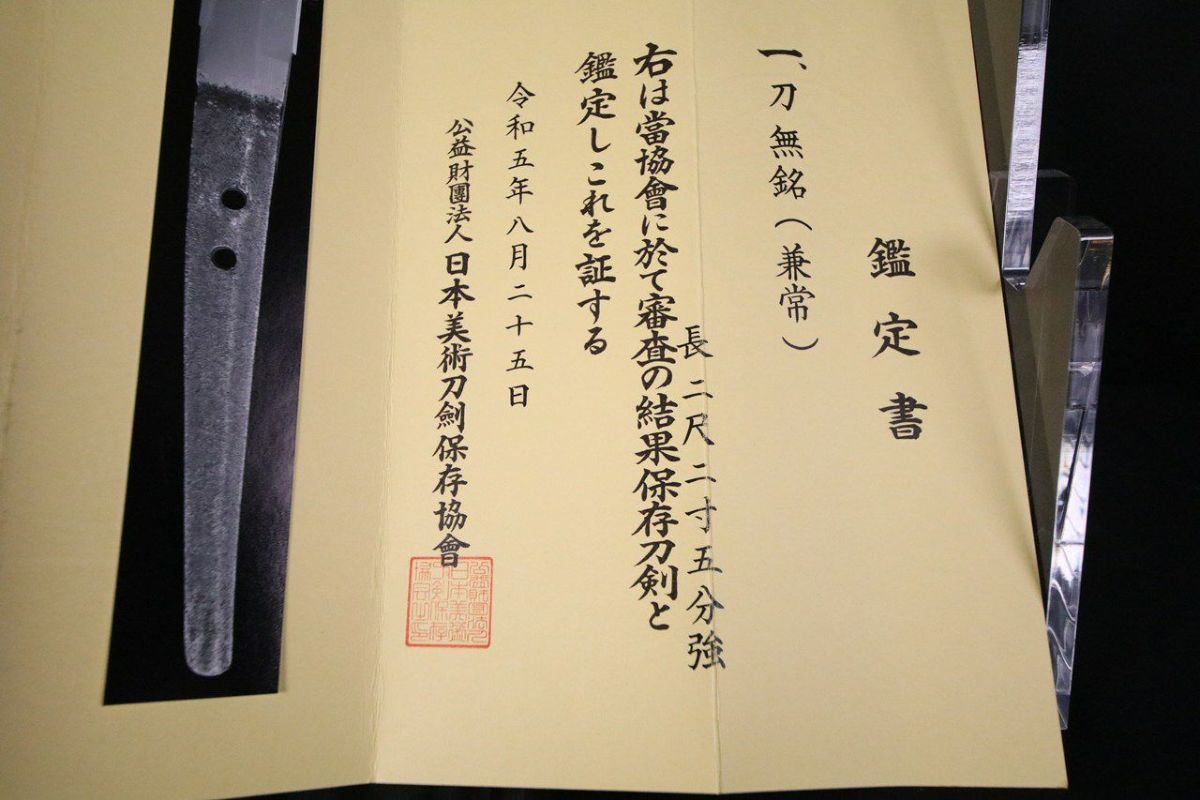 鑑定書
一、刀 無銘(兼常)
長二尺二寸五分強
右は當協會に於て審査の結果保存刀剣と
鑑定しこれを証する
令和五年八月二十五日
公益財團法人日本美術刀劍保存協會